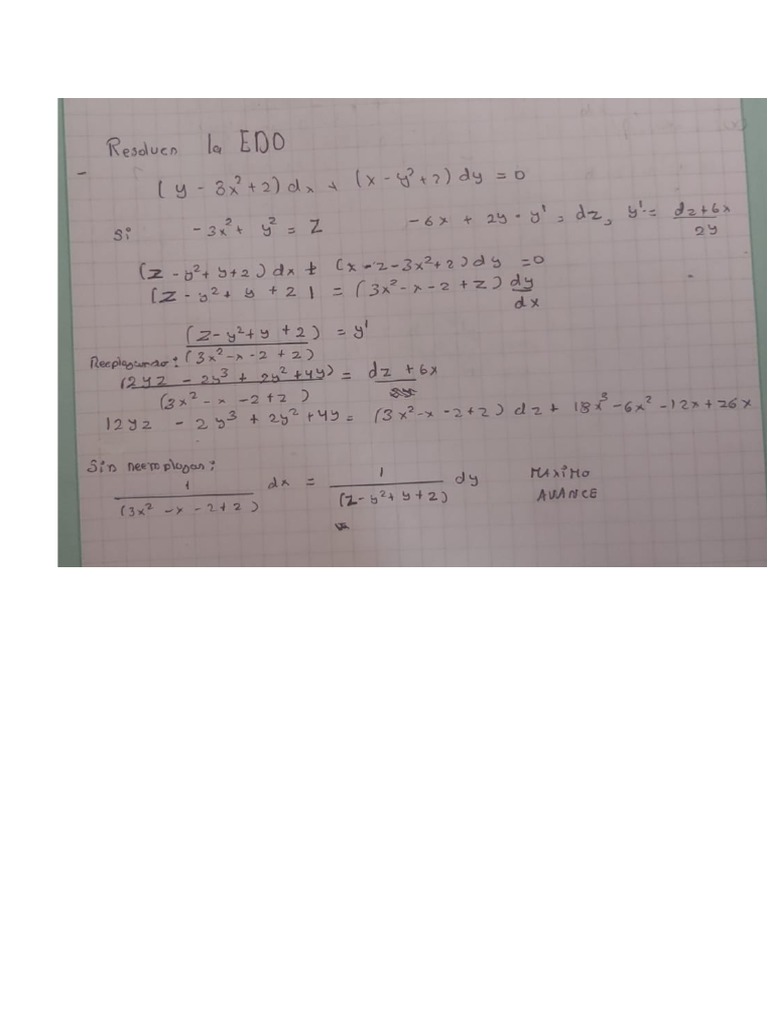 Resolver la EDO
- (y - 3x² + 2) dx + (x - y² + 2) dy = 0
Si -3x² + y² = Z -6x + 2y · y' = dz, y' = dz+6x / 2y
(z - y² + y + 2) dx + (x - z - 3x² + 2) dy = 0
(z - y² + y + 2) = (3x² - x - 2 + z) dy/dx
(z - y² + y + 2) / (3x² - x - 2 + z) = y'
Reemplazando: (2yz - 2y³ + 2y² + 4y) / (3x² - x - 2 + z) = dz + 6x
12yz - 2y³ + 2y² + 4y = (3x² - x - 2 + z) dz + 18x³ - 6x² - 12x + 26x
Sin reemplazar:
1 / (3x² - x - 2 + z) dx = 1 / (z - y² + y + 2) dy MAXIMO
AVANCE